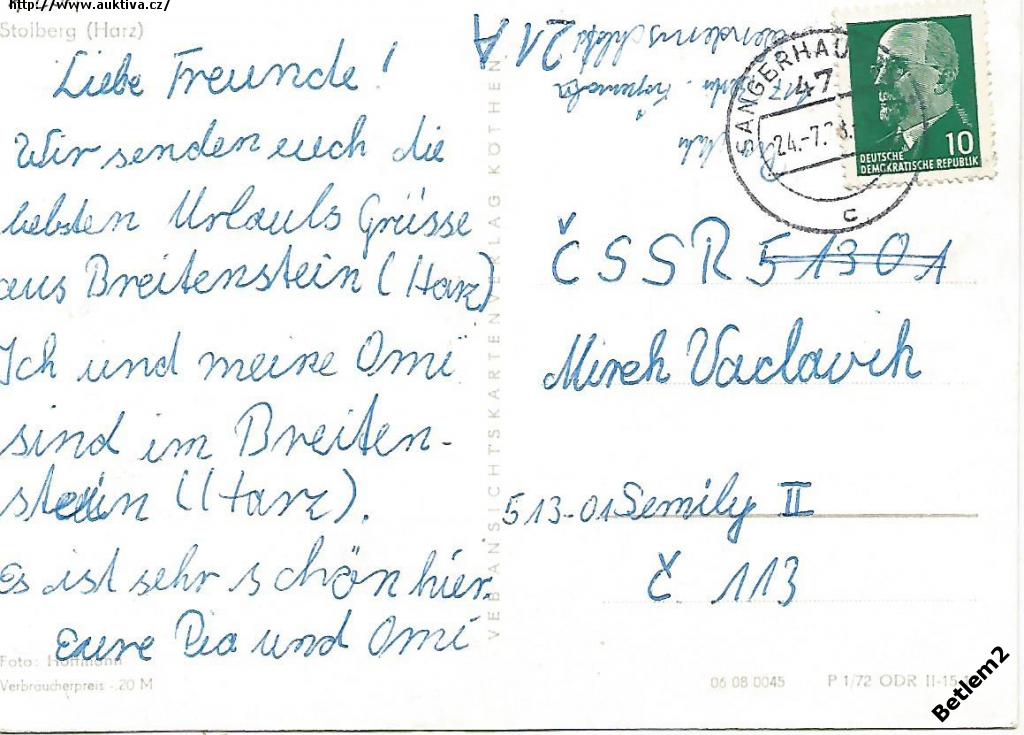 http://www.auktiva.cz/
Stolberg (Harz)
Liebe Freunde!
Wir senden euch die
liebsten Urlaubs Grüsse
aus Breitenstein (Harz)
Ich und meine Omi
sind im Breiten-
stein (Harz).
Es ist sehr schön hier.
Eure Pia und Omi
Foto: Hoffmann
Verbraucherpreis -,20 M
VEB ANSICHTSKARTENVERLAG KÖTHEN
21 A
SANGERHAU
47
24.-7.
c
10
DEUTSCHE
DEMOKRATISCHE REPUBLIK
ČSSR 51301
Mirek Vaclavik
513-01 Semily II
Č 113
06 08 0045
P 1/72 ODR II-15-
Betlem2